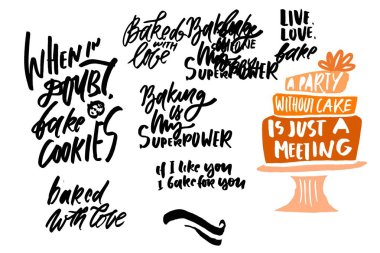 WHEN IN
DOUBT,
bake
COOKIES
Baked
WITH
love
Baking
My
SUPERPOWER
LIVE.
LOVE.
bake
Baking
is
My
SUPERPOWER
A PARTY
WITHOUT CAKE
IS JUST A
MEETING
if I like you
I bake for you
baked
with love